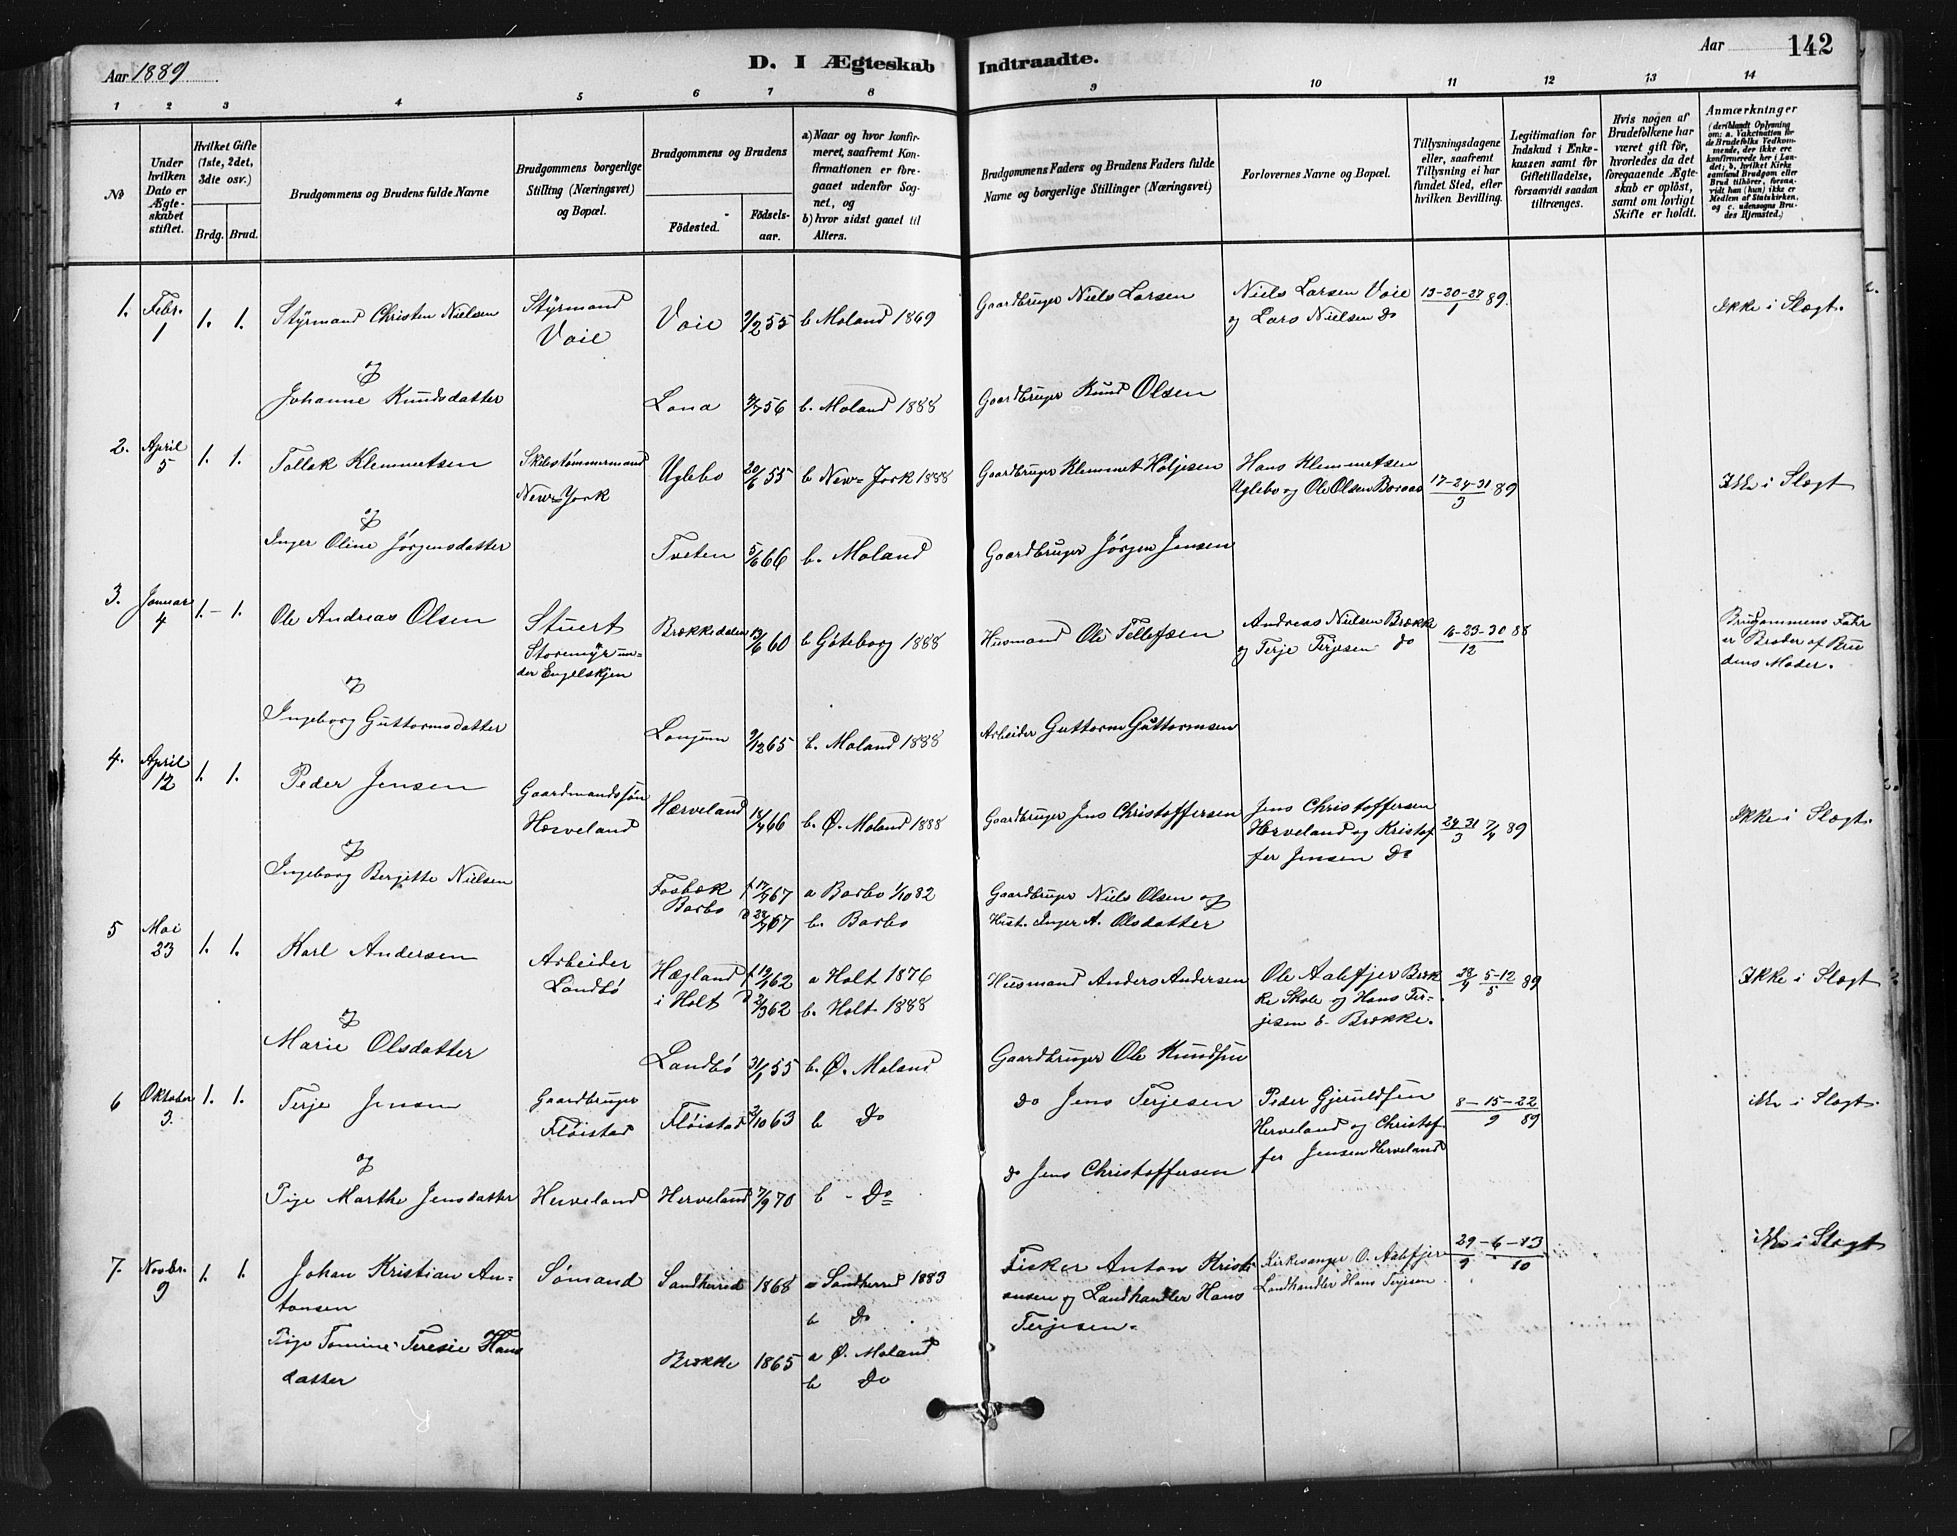 Aar 1889
D. I Ægteskab Indtraadte.
Aar 142
1 2 3 4 5 6 7 8 9 10 11 12 13 14
No
Under hvilken Dato er Ægteskabet stiftet.
Hvilket Gifte (1ste, 2det, 3die osv.)
Brdg. Brud.
Brudgommens og Brudens fulde Navne
Brudgommens borgerlige Stilling (Næringsvei) og Bopæl.
Brudgommens og Brudens
Födested. Födselsaar.
a) Naar og hvor konfirmeret, saafremt Konfirmationen er foregaaet udenfor Sognet, og
b) hvor sidst gaaet til Alters.
Brudgommens Faders og Brudens Faders fulde Navne og borgerlige Stillinger (Næringsvei)
Forlovernes Navne og Bopæl.
Tillysningsdagene eller, saafremt Tillysning ei har fundet Sted, efter hvilken Bevilling.
Legitimation for Indskud i Enkekassen samt for Giftetilladelse, forsaavidt saadan tiltrænges.
Hvis nogen af Brudefolkene har været gift før, hvorledes da det foregaaende Ægteskab er oplöst, samt om lovligt Skifte er holdt.
Anmærkninger
(deriblandt Oplysning om: a. Vakcination for de Brudefolks Vedkommende, der ikke ere konfirmerede her i Landet; b. hvilket Kirkesamfund Brudgom eller Brud tilhörer, forsaavidt han (hun) ikke er Medlem af Statskirken, og c. udensogns Brudes Hjemsted.)
1. Febr. 1 1. 1. Styrmand Christen Nielsen Styrmand Voie Voie 9/2 55 b Moland 1869 Gaardbruger Niels Larsen Niels Larsen Voie og Lars Nielsen do 13-20-27/1 89. Ikke i Slægt.
og
Johanne Knudsdatter Lona 7/7 56 b. Moland 1888 Gaardbruger Knud Olsen
2. April 5 1. 1. Tollak Klemmetsen Skibstømmermand New=York Uglebo 20/6 55 b New=York 1888 Gaardbruger Klemmet Holjesen Hans Klemmetsen Uglebo og Ole Olsen Boraas 17-24-31/3 89 Ikke i Slægt
og
Inger Oline Jørgensdatter Tveten 5/6 66 b. Moland Gaardbruger Jørgen Jensen
3. Januar 4 1. - 1. Ole Andreas Olsen Stuert Storemyr under Engelskjen Brækkedalen 13/6 60 b Göteborg 1888 Husmand Ole Tellefsen Andreas Nielsen Brække og Terje Terjesen do 16-23-30/12 88 Brudgommens Fader er Broder af Brudens Moder.
og
Ingeborg Guttormsdatter Longum 9/12 65 b. Moland 1888 Arbeider Guttorm Guttormsen
4. April 12 1. 1. Peder Jensen Gaardmandssøn Hærveland Hærveland 18/7 66 b. Ø. Moland 1888 Gaardbruger Jens Christoffersen Jens Christoffersen Herveland og Kristoffer Jensen do 24-31/3 7/4 89 Ikke i Slægt.
og
Ingeborg Bergitte Nielsen Fosbæk Barbo f 17/7 67 d 28/7 67 a Barbo 1/10 82 b. Barbo Gaardbruger Niels Olsen og Hust. Inger A. Olsdatter
5 Mai 23 1. 1. Karl Andersen Arbeider Landbø Hægland i Holt 62 62 a Holt 1876 b. Holt 1888 Husmand Anders Andersen Ole Aalefjer Brække Skole og Hans Terjesen E. Brække. 28/4 5-12/5 89 Ikke i Slægt
og
Marie Olsdatter Landbø 31/1 55 b. Ø. Moland Gaardbruger Ole Knudsen
6 Oktober 3. 1. 1. Terje Jensen Gaardbruger Fløistad Fløistad 2/10 63 b Do do Jens Terjesen Peder Gjeruldsen Herveland og Christoffer Jensen Herveland 8-15-22/9 89 ikke i Slægt.
og
Pige Marthe Jensdatter Herveland Herveland 7/9 70 b - Do do Jens Christoffersen
7. Novbr. 9 1. 1. Johan Kristian Antonsen Sømand Sandherred 1868 a Sandherred 1883 b Do Fisker Anton Kristiansen og Landhandler Hans Terjesen. Kirkesanger O. Aalefjer Landhandler Hans Terjesen 29/9 - 6 - 13/10 ikke i Slægt
Pige Tomine Teresie Hansdatter Brække 1865 a Ø. Moland b Do